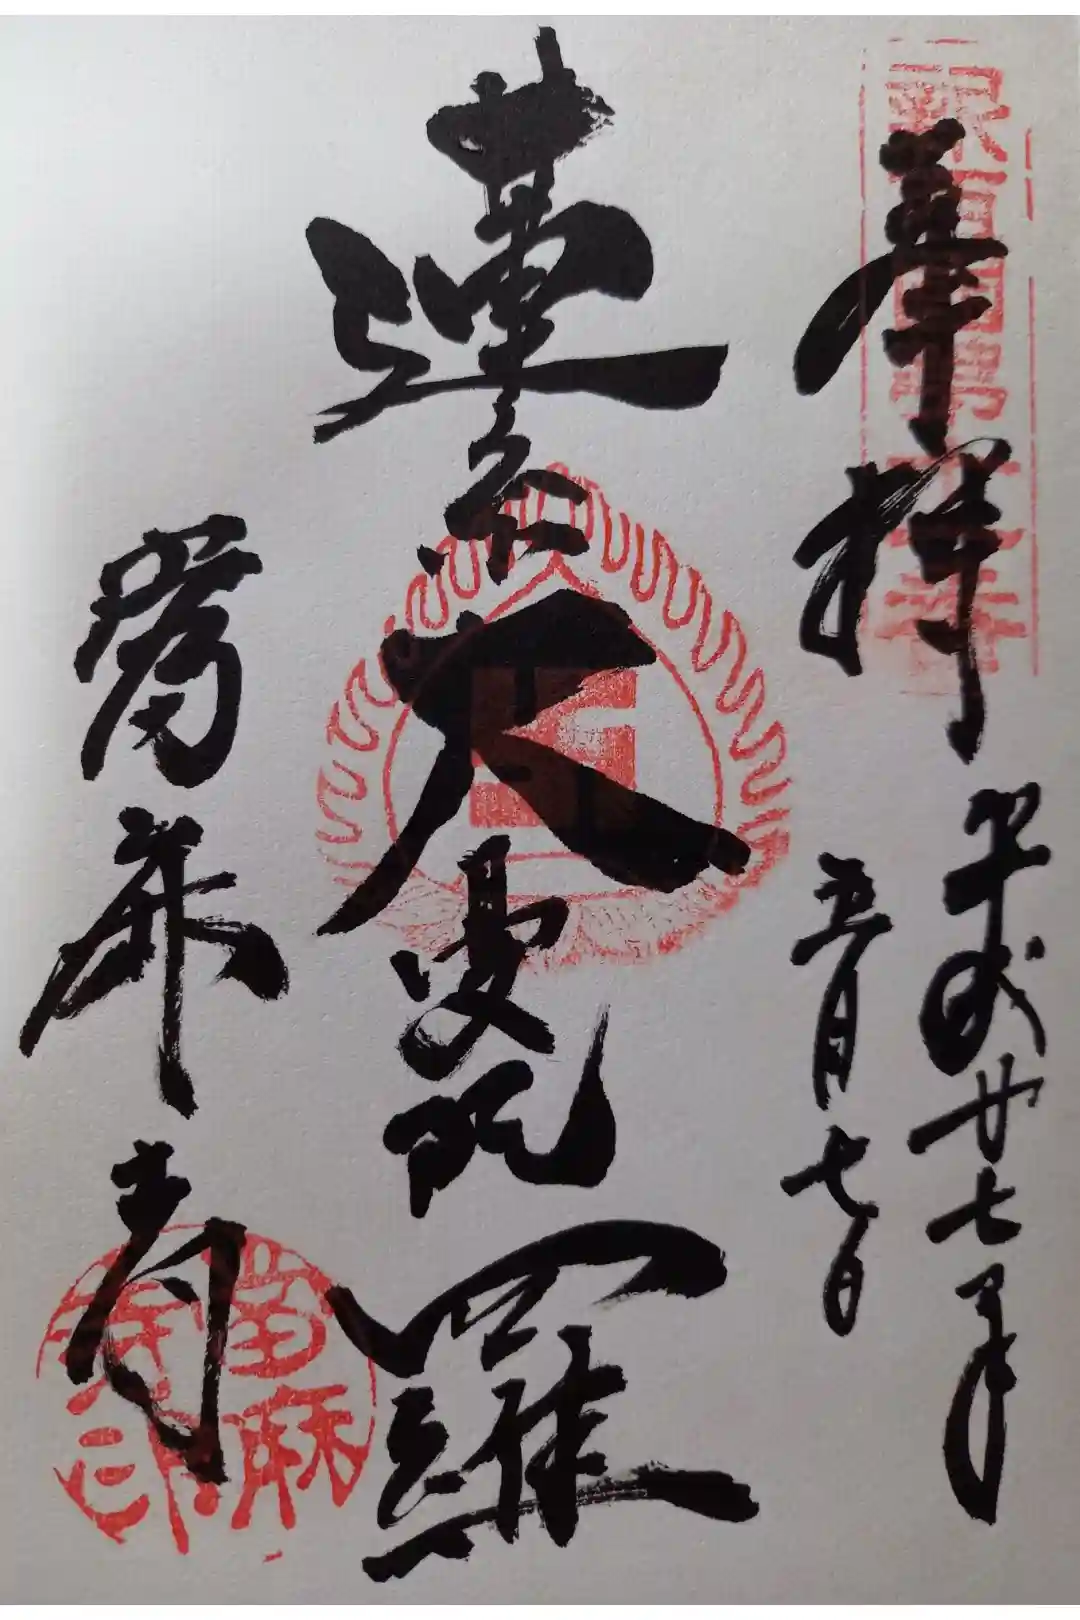 奉拝
平成廿七年
五月七日
蓮糸大曼陀羅
當麻寺
當麻
寺印